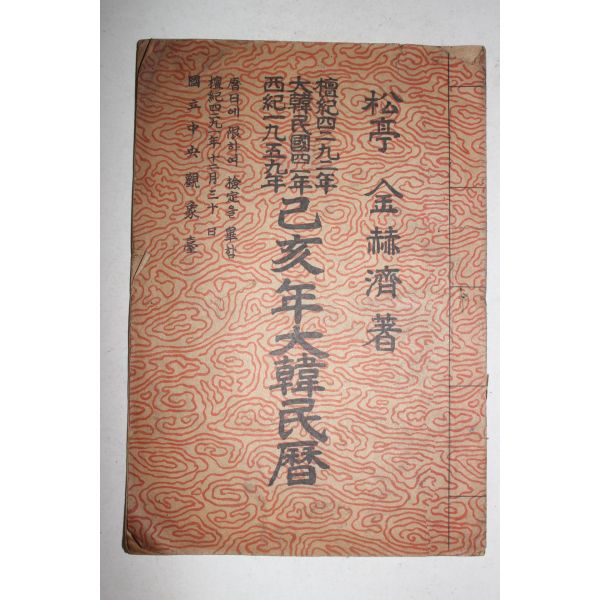 松亭 金赫濟 著
檀紀四二九二年
大韓民國四一年
西紀一九五九年
己亥年大韓民曆
曆日에 限하여 檢定을 畢함
檀紀四二九一年十二月三十日
國立中央觀象臺